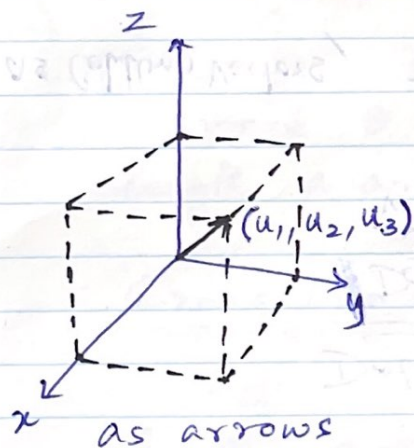 z
(u₁, u₂, u₃)
y
x
as arrows